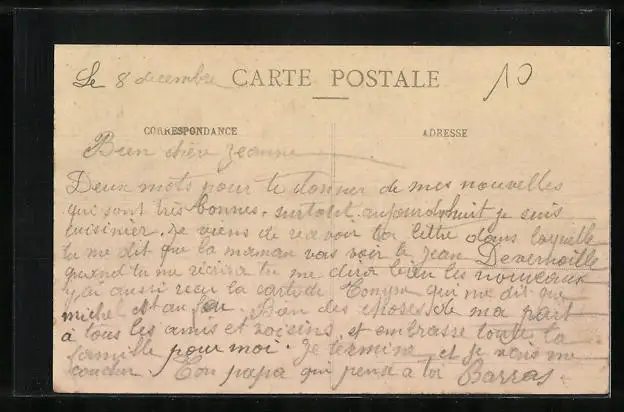 Le 8 decembre CARTE POSTALE 10
CORRESPONDANCE ADRESSE
Bien chère Jeanne
Deux mots pour te donner de mes nouvelles
qui sont très bonnes, surtout aujourd'huit je suis
cuisinier. Je viens de recevoir ta lettre dans laquelle
tu me dit que la maman vas voir la Jean
quand tu me écrira tu me dira bien les nouveaux
j'ai aussi reçu la carte de qui me dit que
michel est au feu. Bien des choses de ma part
à tous les amis et voisins, et embrasse toute la
famille pour moi. Je termine, et je vais me
coucher. Ton papa qui pense a toi Barras